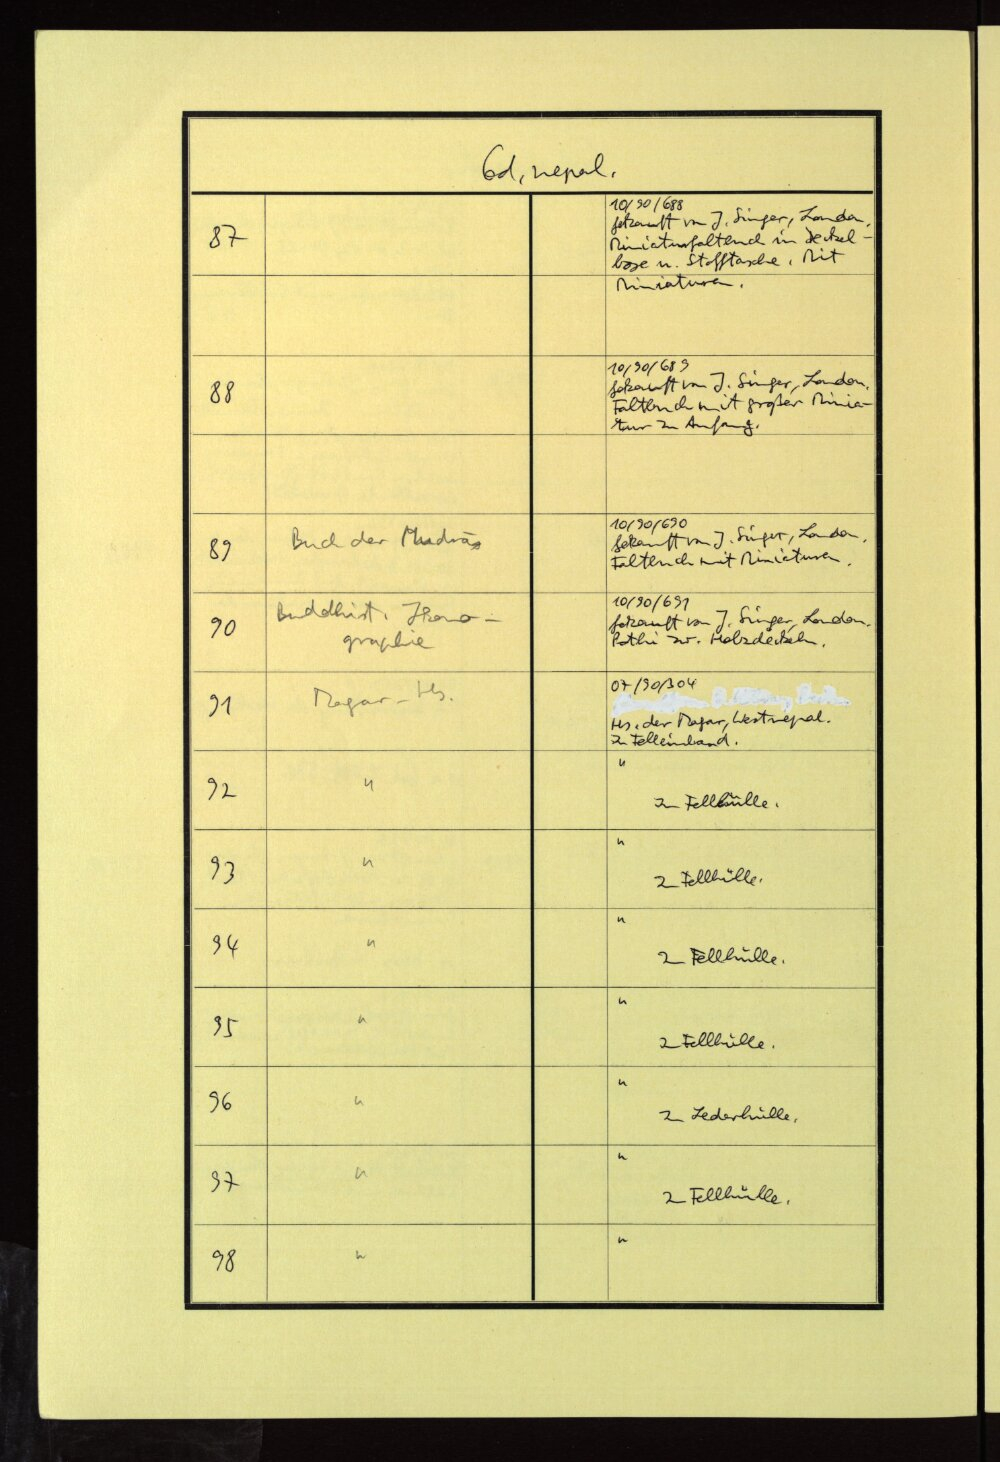 Cod. nepal.
87
10/90/688
gekauft von J. Singer, London.
Miniaturfaltbuch in Deckel-
box u. Stofftasche. Mit
Miniaturen.
88
10/90/689
gekauft von J. Singer, London.
Faltbuch mit großer Minia-
tur zu Anfang.
89
Buch der Mudrās
10/90/690
gekauft von J. Singer, London.
Faltbuch mit Miniaturen.
90
Buddhist. Ikono-
graphie
10/90/691
gekauft von J. Singer, London.
Pothi zw. Holzdeckeln.
91
Magar-Hs.
07/90/304
Hs. der Magar, Westnepal.
In Felleinband.
92
"
"
In Fellhülle.
93
"
"
In Fellhülle.
94
"
"
In Fellhülle.
95
"
"
In Fellhülle.
96
"
"
In Lederhülle.
97
"
"
In Fellhülle.
98
"
"